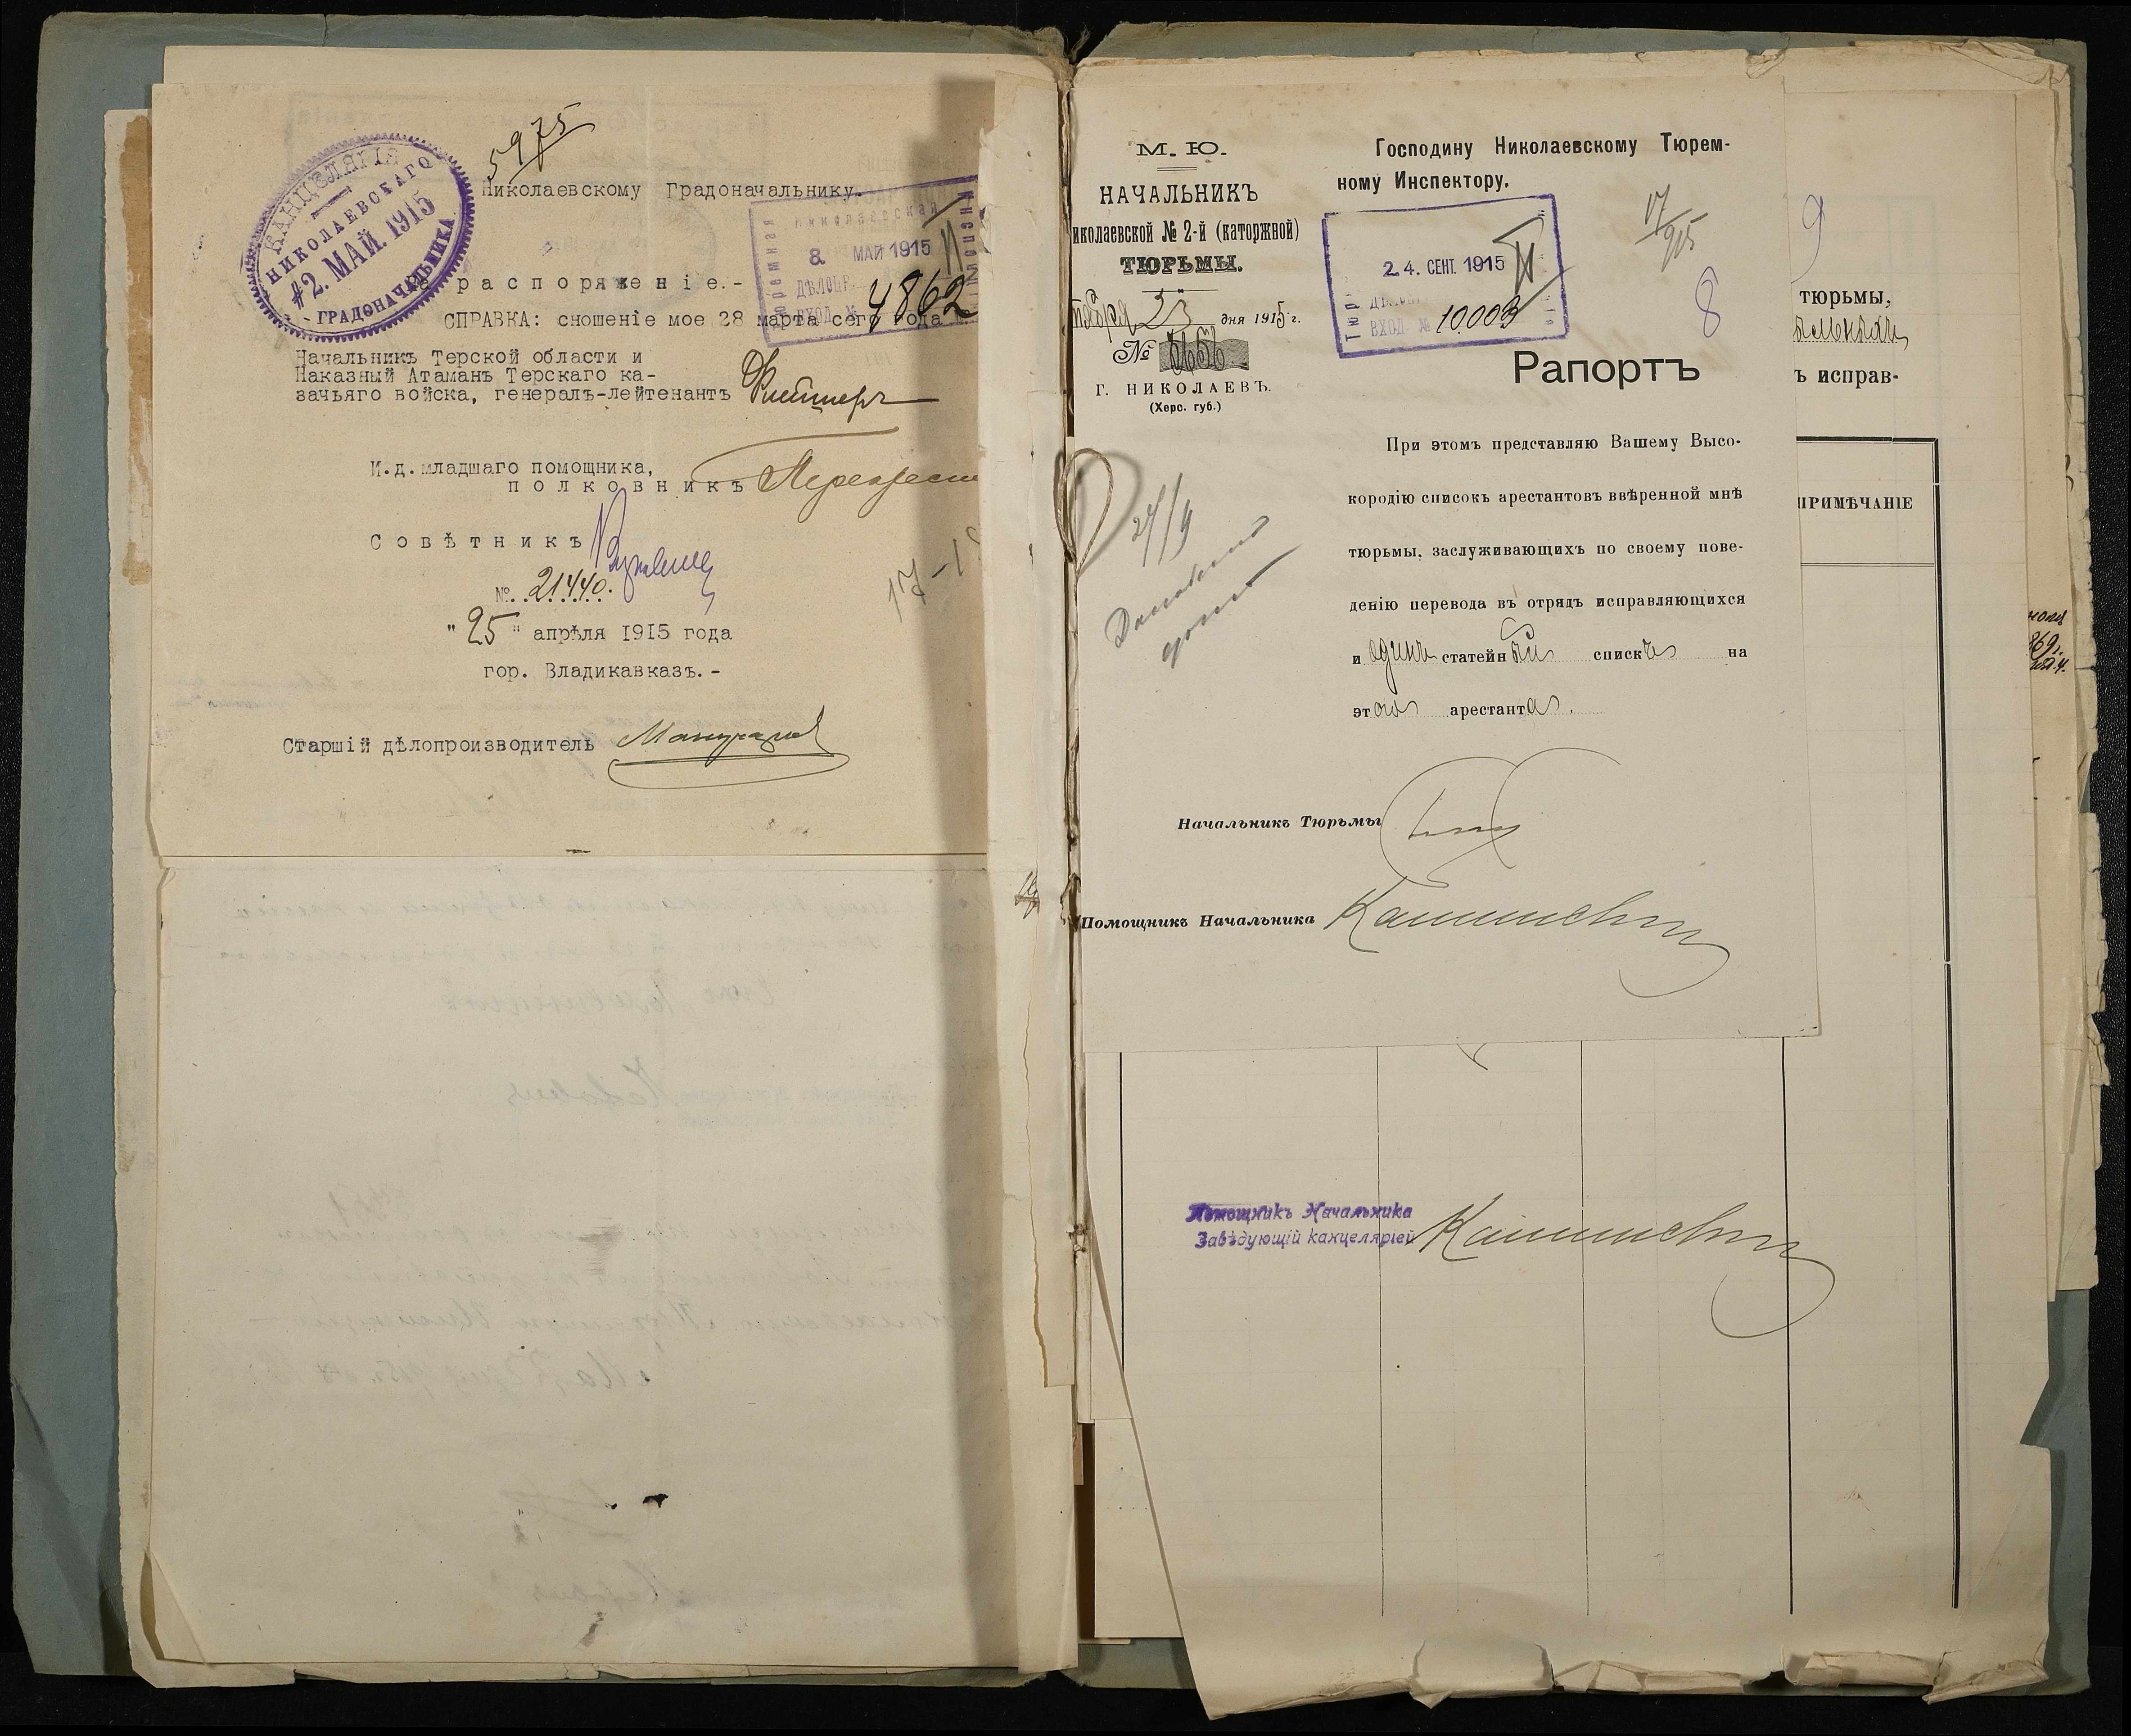 5975
КАНЦЕЛЯРІЯ
НИКОЛАЕВСКАГО
2. МАЙ. 1915
ГРАДОНАЧАЛЬНИКА
Николаевскому Градоначальнику.
Николаевская
Тюремная
8 МАЙ 1915
ВХОД. № 4862
распоряженіе.-
СПРАВКА: сношеніе мое 28 марта сего года
Начальникъ Терской области и
Наказный Атаманъ Терскаго ка-
зачьяго войска, генералъ-лейтенантъ Флейшеръ
И.д. младшаго помощника,
полковникъ
Совѣтникъ
№ 21440.
"25" апрѣля 1915 года
гор. Владикавказъ.-
Старшій дѣлопроизводитель
М. Ю.
НАЧАЛЬНИКЪ
иколаевской № 2-й (каторжной)
ТЮРЬМЫ.
23 дня 1915 г.
№ 5656
Г. НИКОЛАЕВЪ.
(Херс. губ.)
Господину Николаевскому Тюрем-
ному Инспектору.
24. СЕНТ. 1915
ВХОД № 10003
17/915
8
Рапортъ
При этомъ представляю Вашему Высо-
кородію списокъ арестантовъ ввѣренной мнѣ
тюрьмы, заслуживающихъ по своему пове-
денію перевода въ отрядъ исправляющихся
и одинъ статейный списокъ на
этого арестанта.
24/9
Начальникъ Тюрьмы
Помощникъ Начальника
Помощникъ Начальника
Завѣдующій канцеляріей
9
тюрьмы,
ъ исправ-
ПРИМѢЧАНІЕ